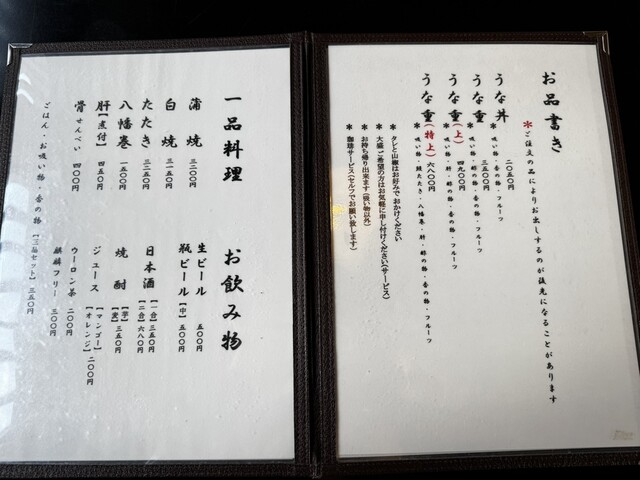 お品書き
＊ご注文の品によりお出しするのが後先になることがあります
うな丼 二〇五〇円
＊吸い物・香の物・フルーツ
うな重 三五〇〇円
＊吸い物・肝・香の物・フルーツ
うな重(上) 四九〇〇円
＊吸い物・肝・酢の物・香の物・フルーツ
うな重(特上) 六八〇〇円
＊吸い物・鰻たたき・八幡巻・肝・酢の物・香の物・フルーツ
＊ タレと山椒はお好みでおかけください
＊ 大盛ご希望の方はお気軽に申し付けください(サービス)
＊ お持ち帰り出来ます(吸い物以外)
＊ 珈琲サービス(セルフでお願い致します)
一品料理
蒲焼 三二〇〇円
白焼 三一五〇円
たたき 三二五〇円
八幡巻 一五〇〇円
肝【煮付】 四五〇円
骨せんべい 四〇〇円
ごはん・お吸い物・香の物【三品セット】 三五〇円
お飲み物
生ビール 五〇〇円
瓶ビール【中】 五〇〇円
日本酒【一合】三五〇円
【二合】六八〇円
焼酎【芋】三五〇円
【麦】三五〇円
ジュース【マンゴー】
【オレンジ】二〇〇円
ウーロン茶 二〇〇円
麒麟フリー 三〇〇円